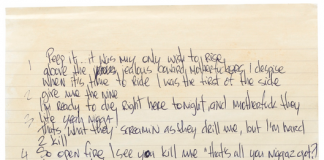 1 Peep it.. it was my only wish to rise
above the jealous coward motherfuckers I despise
when it's time to ride I was the first at the side
2 give me the nine
I'm ready to die right here tonight and motherfuck they
life yeah nigga!
3 that's what they screamin as they drill me, but I'm hard
2 kill
4 So open fire, I see you kill me "that's all you niggaz got?"